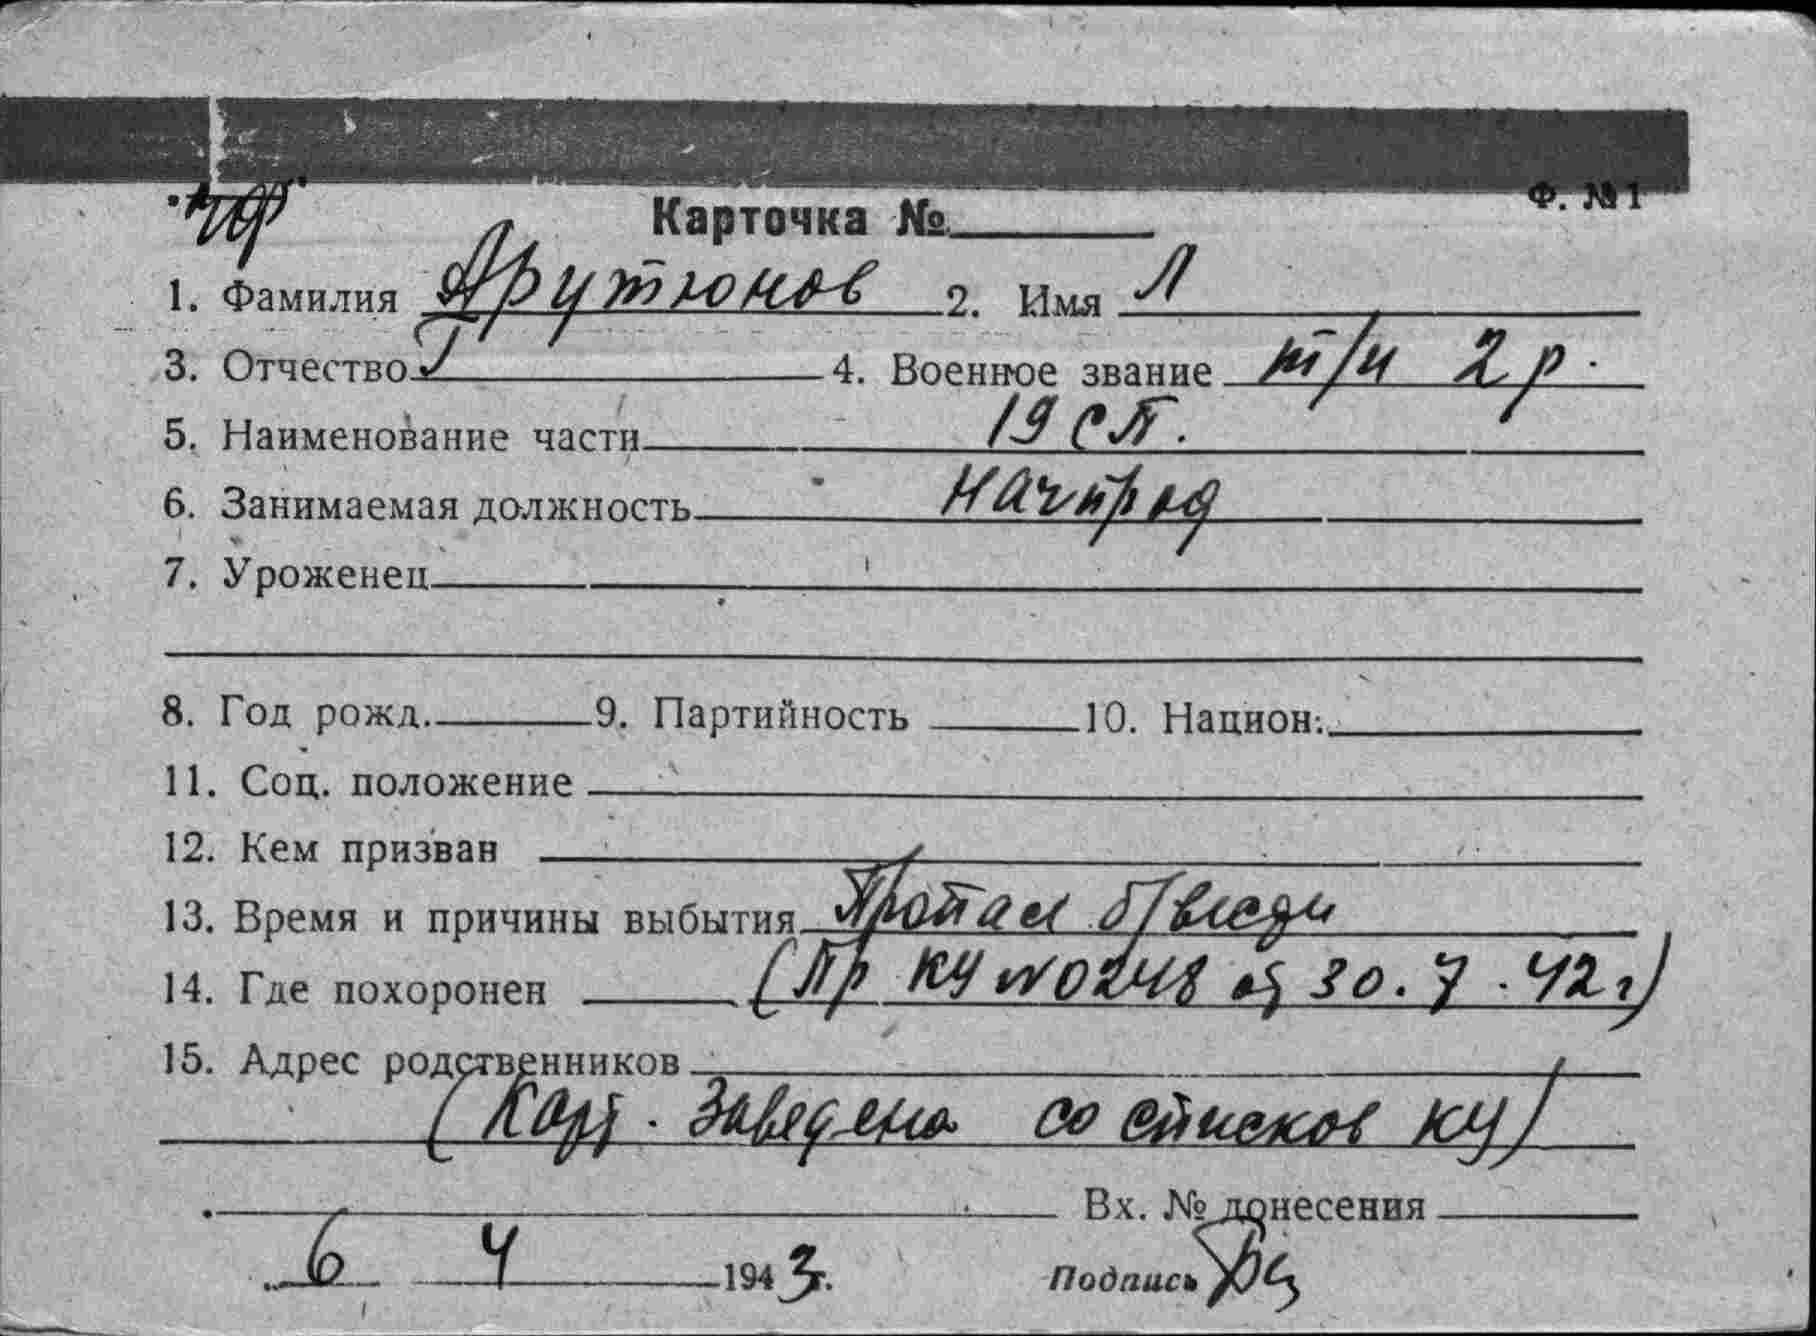 Ф. № 1
Карточка №
1. Фамилия Арутюнов 2. Имя Л
3. Отчество Г 4. Военное звание т/и 2 р.
5. Наименование части 19 сп.
6. Занимаемая должность Начпрод
7. Уроженец
8. Год рожд. 9. Партийность 10. Национ.
11. Соц. положение
12. Кем призван
13. Время и причины выбытия Пропал б/вести
14. Где похоронен (Пр КУ № 0248 от 30.7.42 г)
15. Адрес родственников
(Карт. Заведена со списков КУ)
Вх. № донесения
6 4 1943 г. Подпись